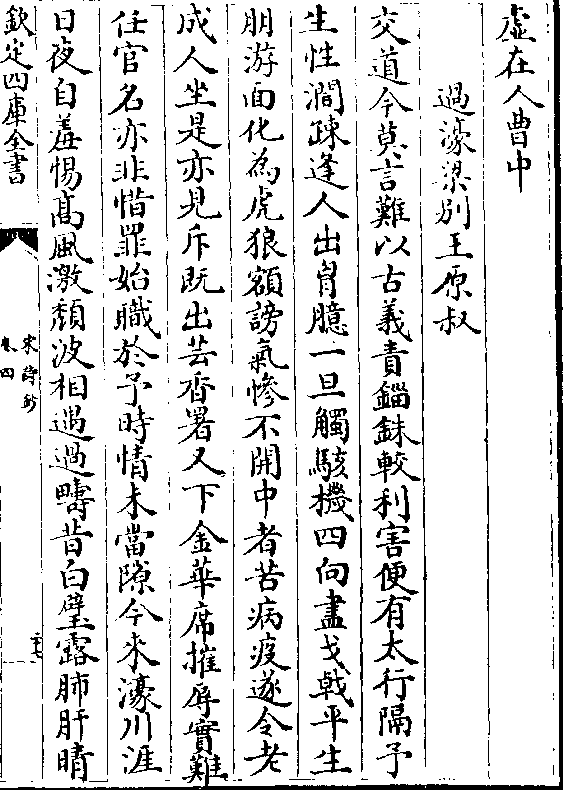 虛在人曹中
過濠梁別王原叔
交道今莫言難以古義責錙銖較利害便有太行隔予
生性濶疎逢人出胷臆一旦觸駭機四向盡戈戟平生
朋游面化為虎狼額謗氣慘不開中者苦病疫遂令老
成人坐是亦見斥既出芸香署又下金華席摧辱實難
任官名亦非惜罪始職於予時情未當隙今來濠川涯
日夜自羞惕髙風激頽波相遇過疇昔白璧露肺肝晴
欽定四庫全書
宋詩鈔
卷四